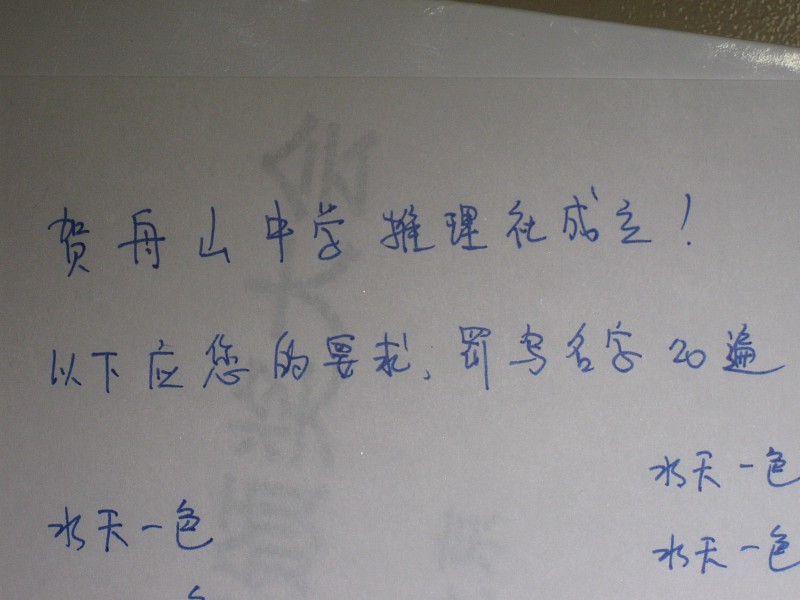 贺舟山中学推理社成立！
以下应您的要求，罚写名字20遍
水天一色
水天一色
水天一色